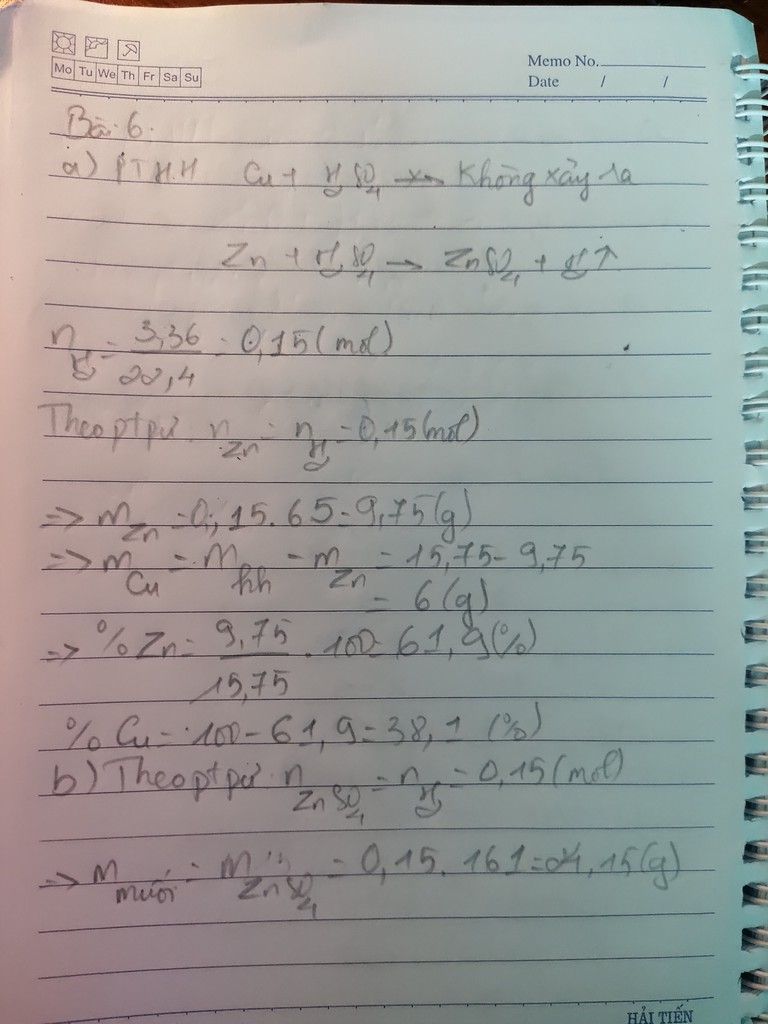 Mo Tu We Th Fr Sa Su
Memo No.
Date / /
Bài 6.
a) PTHH Cu + H2SO4 -x-> Không xảy ra
Zn + H2SO4 → ZnSO4 + H2↑
nH2 = 3,36/22,4 = 0,15 (mol)
Theo pt pứ. nZn = nH2 = 0,15 (mol)
=> mZn = 0,15.65 = 9,75 (g)
=> mCu = mhh - mZn = 15,75 - 9,75
= 6 (g)
=> %Zn = 9,75/15,75 . 100 = 61,9 (%)
% Cu = 100 - 61,9 = 38,1 (%)
b) Theo pt pứ. nZnSO4 = nH2 = 0,15 (mol)
=> mmuối = mZnSO4 = 0,15.161 = 24,15 (g)
HẢI TIẾN